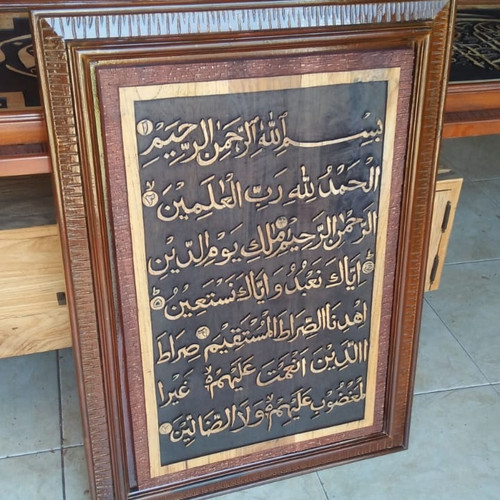 بِسْمِ اللهِ الرَّحْمَنِ الرَّحِيْمِ ١
الْحَمْدُ لِلّهِ رَبِّ الْعَالَمِيْنَ ٢
الرَّحْمَنِ الرَّحِيْمِ ٣ مَلِكِ يَوْمِ الدِّيْنِ ٤
اِيَّاكَ نَعْبُدُ وَاِيَّاكَ نَسْتَعِيْنُ ٥
اِهْدِنَا الصِّرَاطَ الْمُسْتَقِيْمَ ٦ صِرَاطَ
الَّذِيْنَ اَنْعَمْتَ عَلَيْهِمْ غَيْرِا
لْمَغْضُوْبِ عَلَيْهِمْ وَلَا الضَّالِّيْنَ ٧